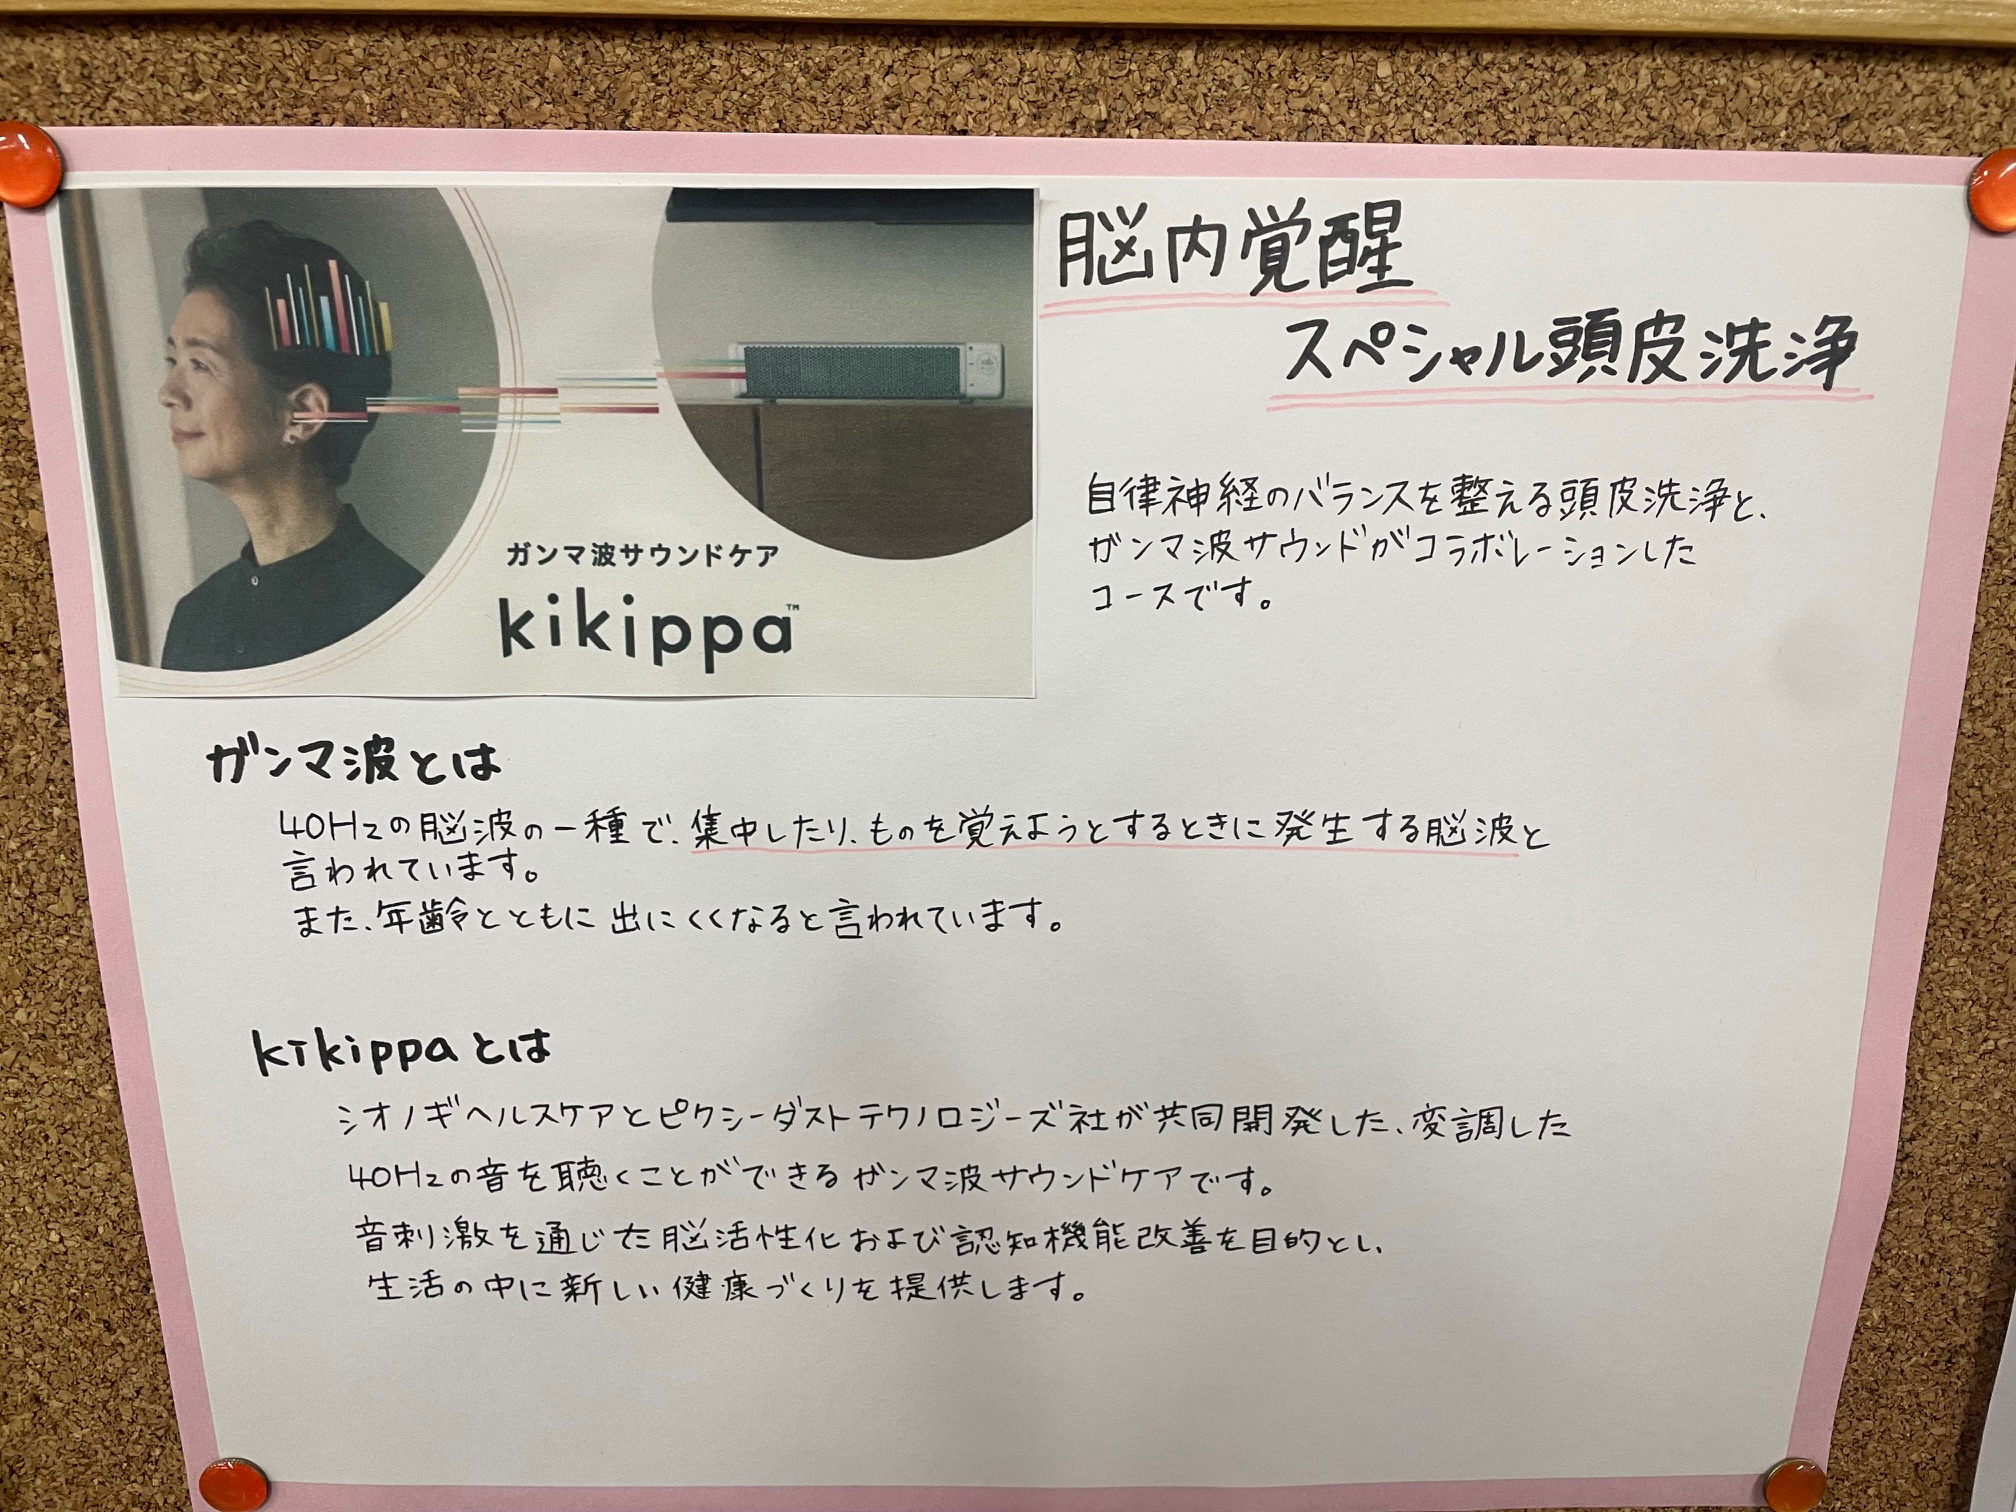 脳内覚醒
スペシャル頭皮洗浄
自律神経のバランスを整える頭皮洗浄と、
ガンマ波サウンドがコラボレーションした
コースです。
ガンマ波サウンドケア
kikippa™
ガンマ波とは
40Hzの脳波の一種で、集中したり、ものを覚えようとするときに発生する脳波と
言われています。
また、年齢とともに出にくくなると言われています。
kikippaとは
シオノギヘルスケアとピクシーダストテクノロジーズ社が共同開発した、変調した
40Hzの音を聴くことができるガンマ波サウンドケアです。
音刺激を通じた脳活性化および認知機能改善を目的とし、
生活の中に新しい健康づくりを提供します。